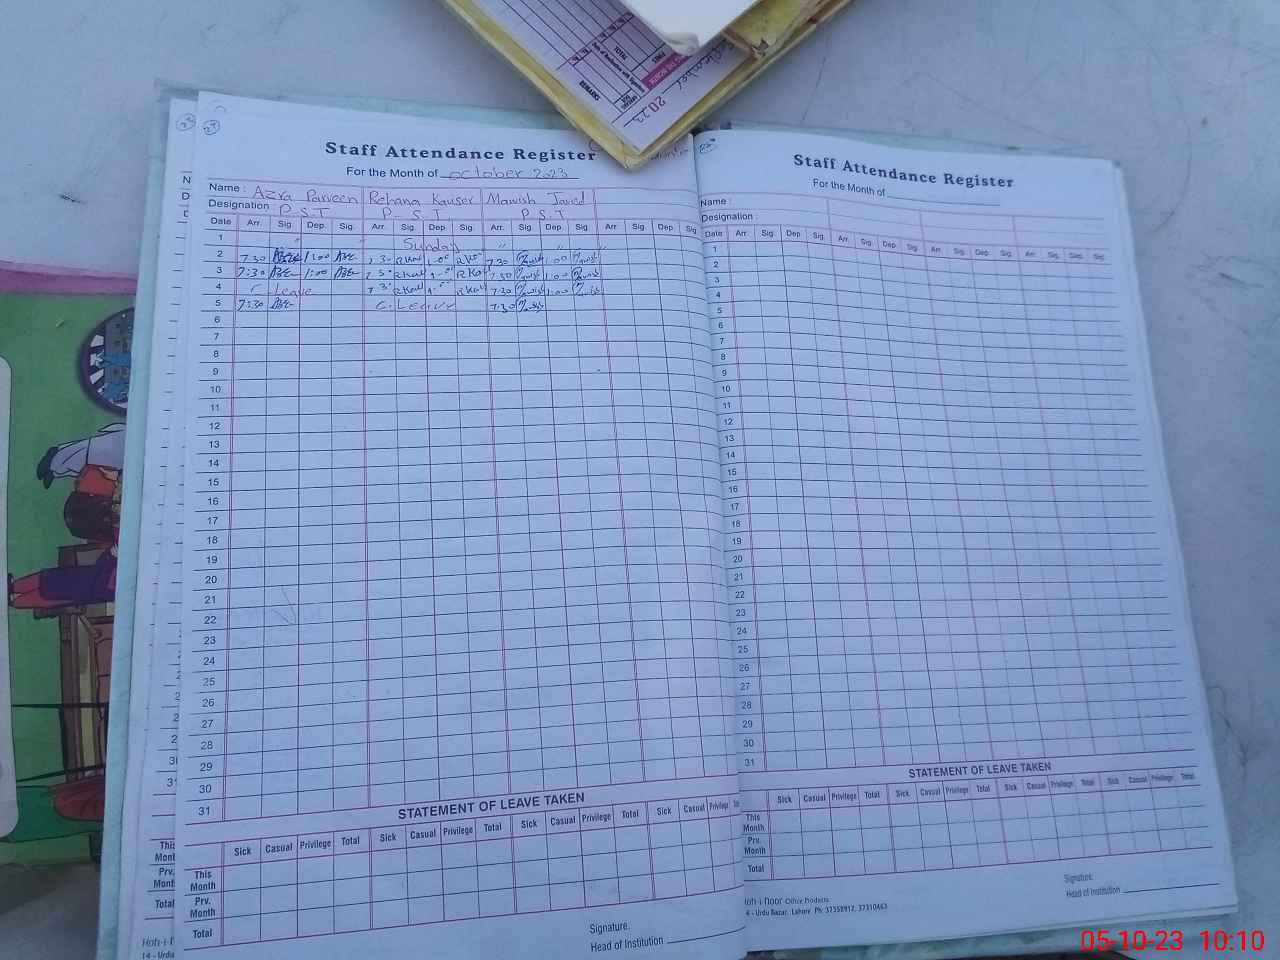 2023
REMARKS
TOTAL
Staff Attendance Register
For the Month of october 2023
Name : Azra Parveen Rehana Kauser Mawish Javed
Designation : P.S.T P-S.T P.S.T
Date Arr. Sig. Dep. Sig. Arr. Sig. Dep. Sig. Arr. Sig. Dep. Sig. Arr. Sig. Dep. Sig.
1 " Sunday " " "
2 7:30 1:00 RKau RKau 7:30 1:00
3 7:30 1:00 RKau RKau 7:30 1:00
4 C Leave RKau RKau 7:30 1:00
5 7:30 C. Leave 7:30
6
7
8
9
10
11
12
13
14
15
16
17
18
19
20
21
22
23
24
25
26
27
28
29
30
31
STATEMENT OF LEAVE TAKEN
Sick Casual Privilege Total Sick Casual Privilege Total Sick Casual Privilege
This Month
Prv. Month
Total
Signature.
Head of Institution
Staff Attendance Register
For the Month of
Name :
Designation :
Date Arr. Sig. Dep. Sig. Arr. Sig. Dep. Sig. Arr. Sig. Dep. Sig. Arr. Sig. Dep. Sig.
1
2
3
4
5
6
7
8
9
10
11
12
13
14
15
16
17
18
19
20
21
22
23
24
25
26
27
28
29
30
31
STATEMENT OF LEAVE TAKEN
Sick Casual Privilege Total Sick Casual Privilege Total Sick Casual Privilege Total Sick Casual Privilege Total
This Month
Prv. Month
Total
Signature.
Head of Institution
Office Products
14 - Urdu Bazar, Lahore Ph: 37358912, 37310463
05-10-23 10:10